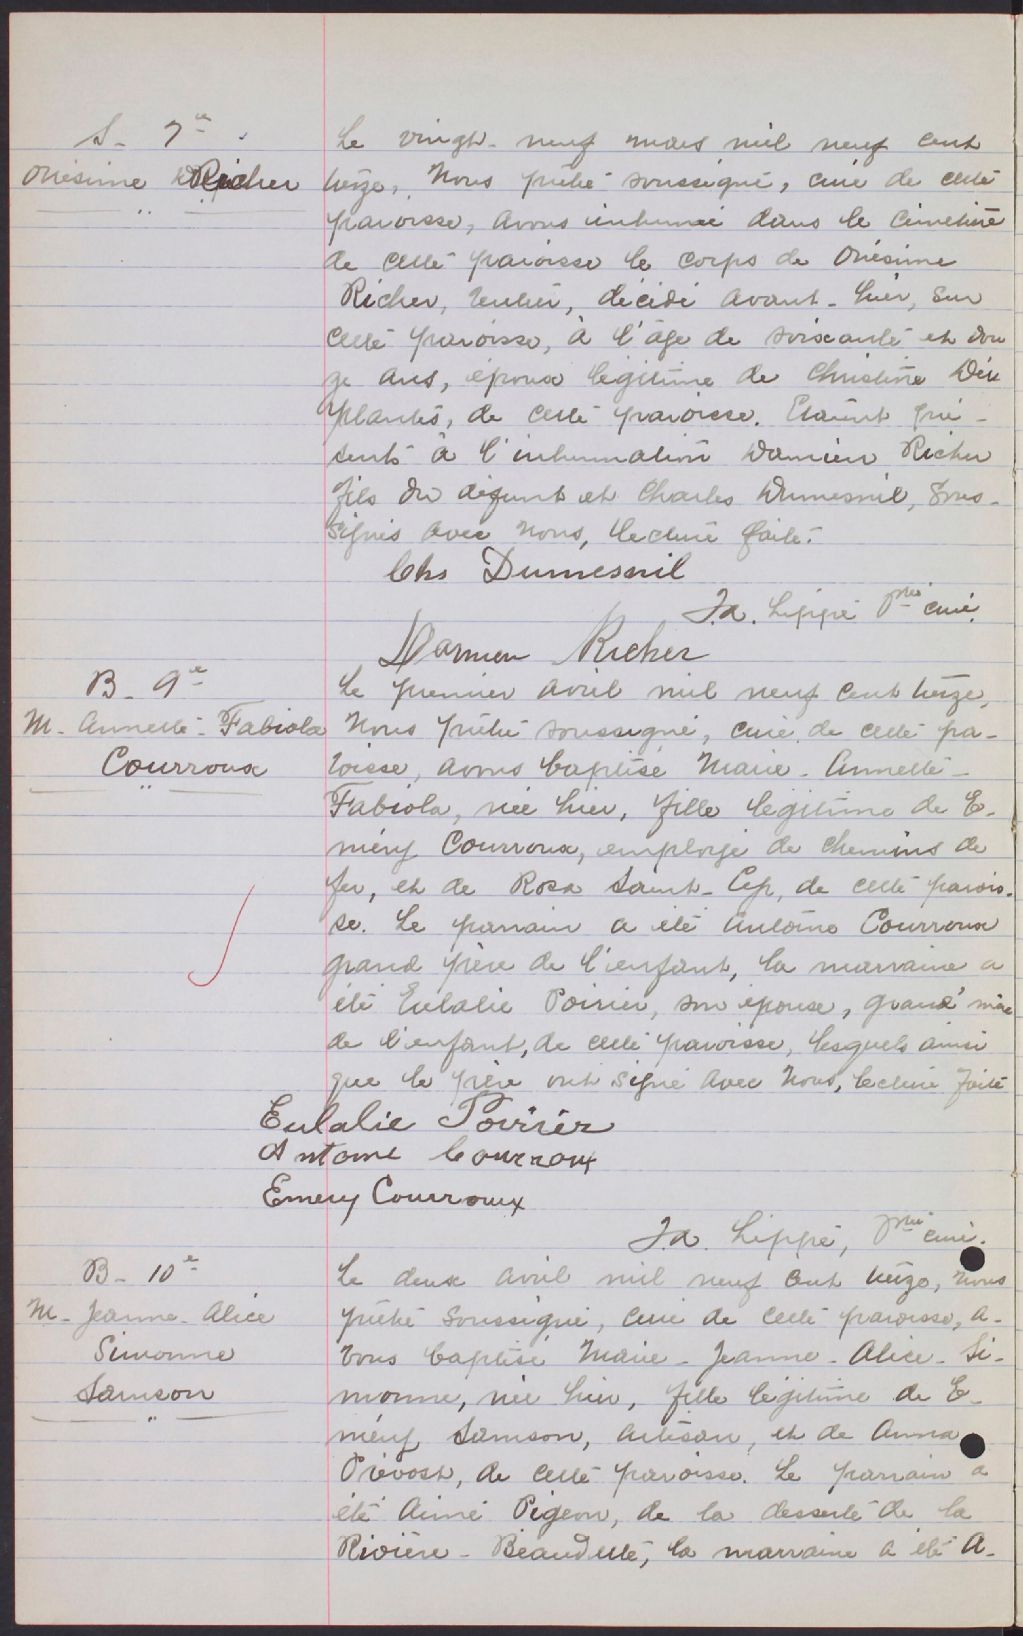 S - 7e
Onésime Richer
Le vingt-neuf mars mil neuf cent
treize, Nous prêtre soussigné, curé de cette
paroisse, avons inhumé dans le cimetière
de cette paroisse le corps de Onésime
Richer, rentier, décédé avant-hier, sur
cette paroisse, à l'âge de soixante et dou
ze ans, époux légitime de Christine Des
plantes, de cette paroisse. Etaient pré-
sents à l'inhumation Damien Richer
fils du défunt et Charles Dumesnil, sous-
signés avec Nous, lecture faite.
Chs Dumesnil
J.A. Lippé Ptre curé.
Damien Richer
B - 9e
M. Annette-Fabiola
Courroux
Le premier avril mil neuf cent treize,
Nous prêtre soussigné, curé de cette pa-
roisse, avons baptisé Marie-Annette-
Fabiola, née hier, fille légitime de E-
méry Courroux, employé de chemins de
fer, et de Rosa Saint-Cyr, de cette parois-
se. Le parrain a été Antoine Courroux
grand père de l'enfant, la marraine a
été Eulalie Poirier, son épouse, grand'mère
de l'enfant, de cette paroisse, lesquels ainsi
que le père ont signé avec Nous, lecture faite
Eulalie Poirier
Antoine Courroux
Emery Courroux
J.A. Lippé, Ptre curé.
B - 10e
M - Jeanne - Alice
Simonne
Samson
Le deux avril mil neuf cent treize, Nous
prêtre soussigné, curé de cette paroisse, a-
vons baptisé Marie-Jeanne-Alice-Si-
monne, née hier, fille légitime de E-
méry Samson, artisan, et de Anna
Prévost, de cette paroisse. Le parrain a
été Aimé Pigeon, de la desserte de la
Rivière-Beaudette, la marraine a été A-